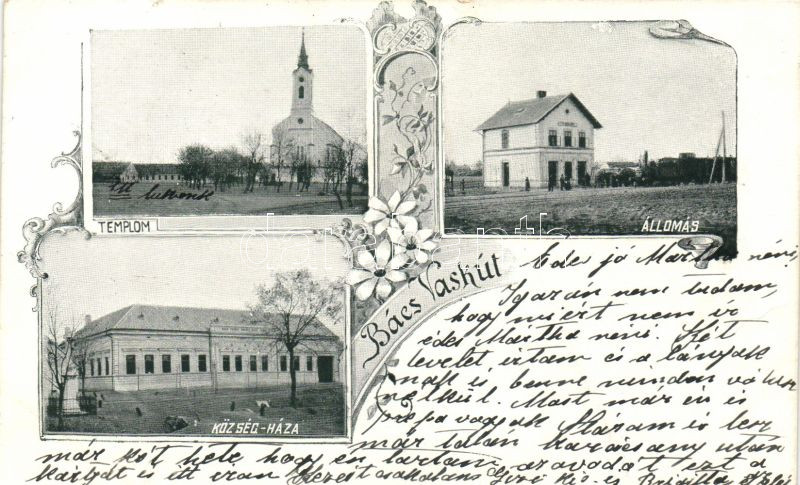 Itt lakunk
TEMPLOM
ÁLLOMÁS
KÖZSÉG-HÁZA
Bács Vaskút
Édes jó Mártha néni,
Igazán nem tudom,
hogy miért nem ir
édes Mártha néni. Két
levelet irtam és a lányok
nak is benne minden válasz
nélkül. Most már én is
prépa vagyok. Nálam is lesz
már talán karácsony után
már két hete hogy én tartom
kártyát is itt iron Kezeit csókolom